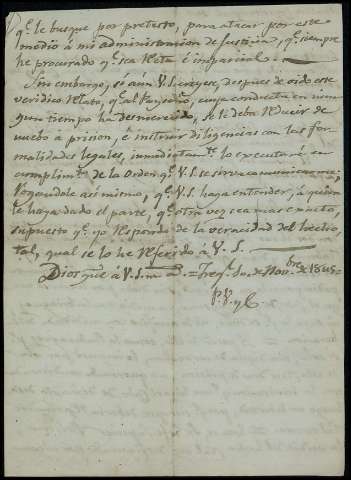 q.e le busque por pretesto, para atacar por este
medio á mi administracion de Justicia, q.e siempre
he procurado q.e sea recta é imparcial.
Sin embargo, si aún V.S. creyese, despues de oido este
veridico relato, q.e al Paysano, cuya conducta en nin-
gun tiempo ha desmerecido, se le deba reducir de
nuebo á prision, é instruir diligencias con las for-
malidades legales, inmediatam.te lo executaré en
cumplim.to de la Orden q.e V.S. se sirva comunicarme;
rogandole asimismo, q.e V.S. haga entender, á quien
le haya dado el parte, q.e otra vez sea mas exacto,
supuesto q.e yo respondo de la veracidad del hecho
tal, qual se lo he referido á V.S.
Dios gue á V.S. m. a. = de Nov.bre de 1815 =